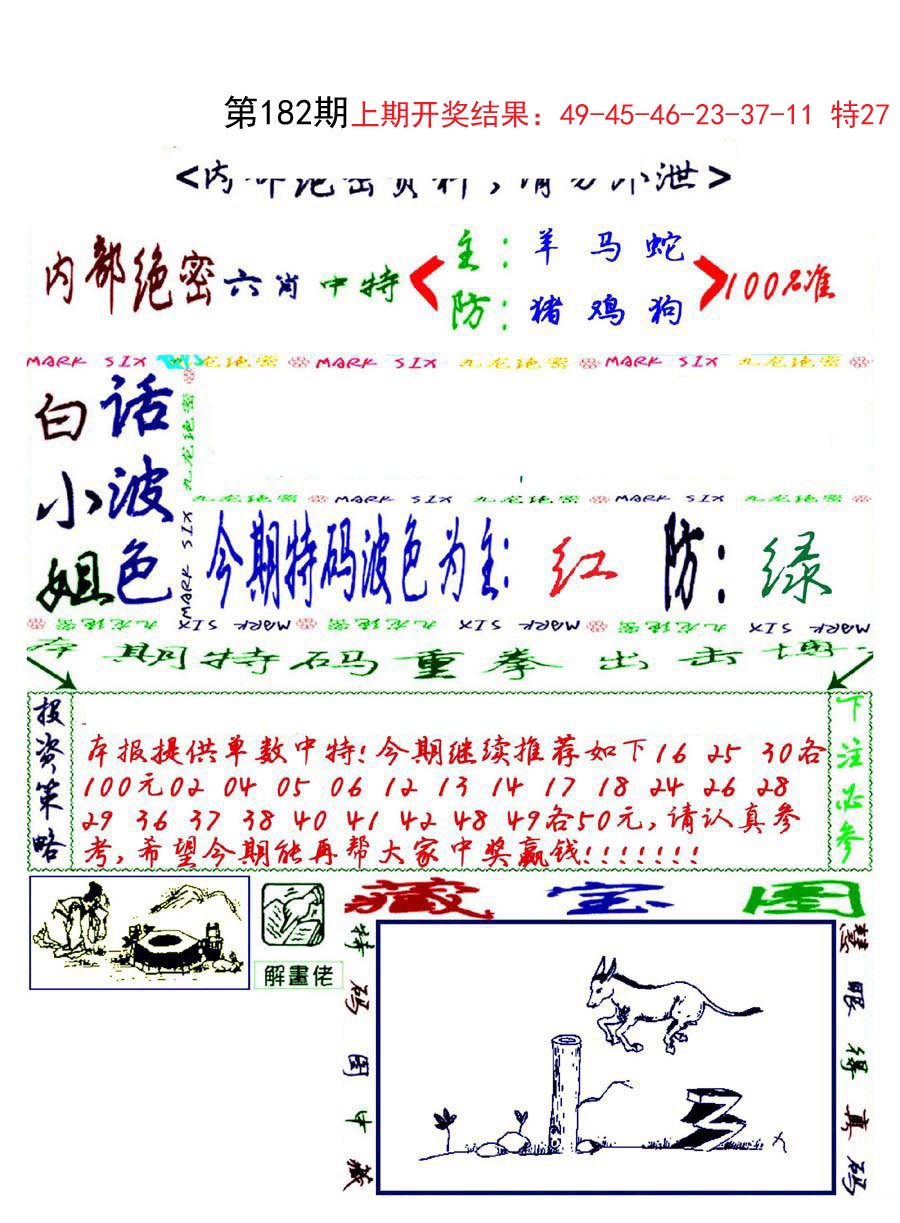 第182期上期开奖结果：49-45-46-23-37-11 特27
<内部绝密资料，请勿外泄>
内部绝密六肖中特
主：羊 马 蛇
防：猪 鸡 狗
100%准
MARK SIX 九龙绝密 MARK SIX 九龙绝密 MARK SIX 九龙绝密
白话
小波
姐色
九龙绝密
MARK SIX
九龙绝密 MARK SIX 九龙绝密 MARK SIX 九龙绝密
今期特码波色为主：红 防：绿
九龙绝密 MARK SIX 九龙绝密 MARK SIX 九龙绝密 MARK SIX
本期特码重拳出击
投资策略
本报提供单数中特!今期继续推荐如下16 25 30各
100元02 04 05 06 12 13 14 17 18 24 26 28
29 36 37 38 40 41 42 48 49各50元,请认真参
考,希望今期能再帮大家中奖赢钱!!!!!!!
下注必参
解畫佬
藏宝图
特码图中藏
慧眼得真码